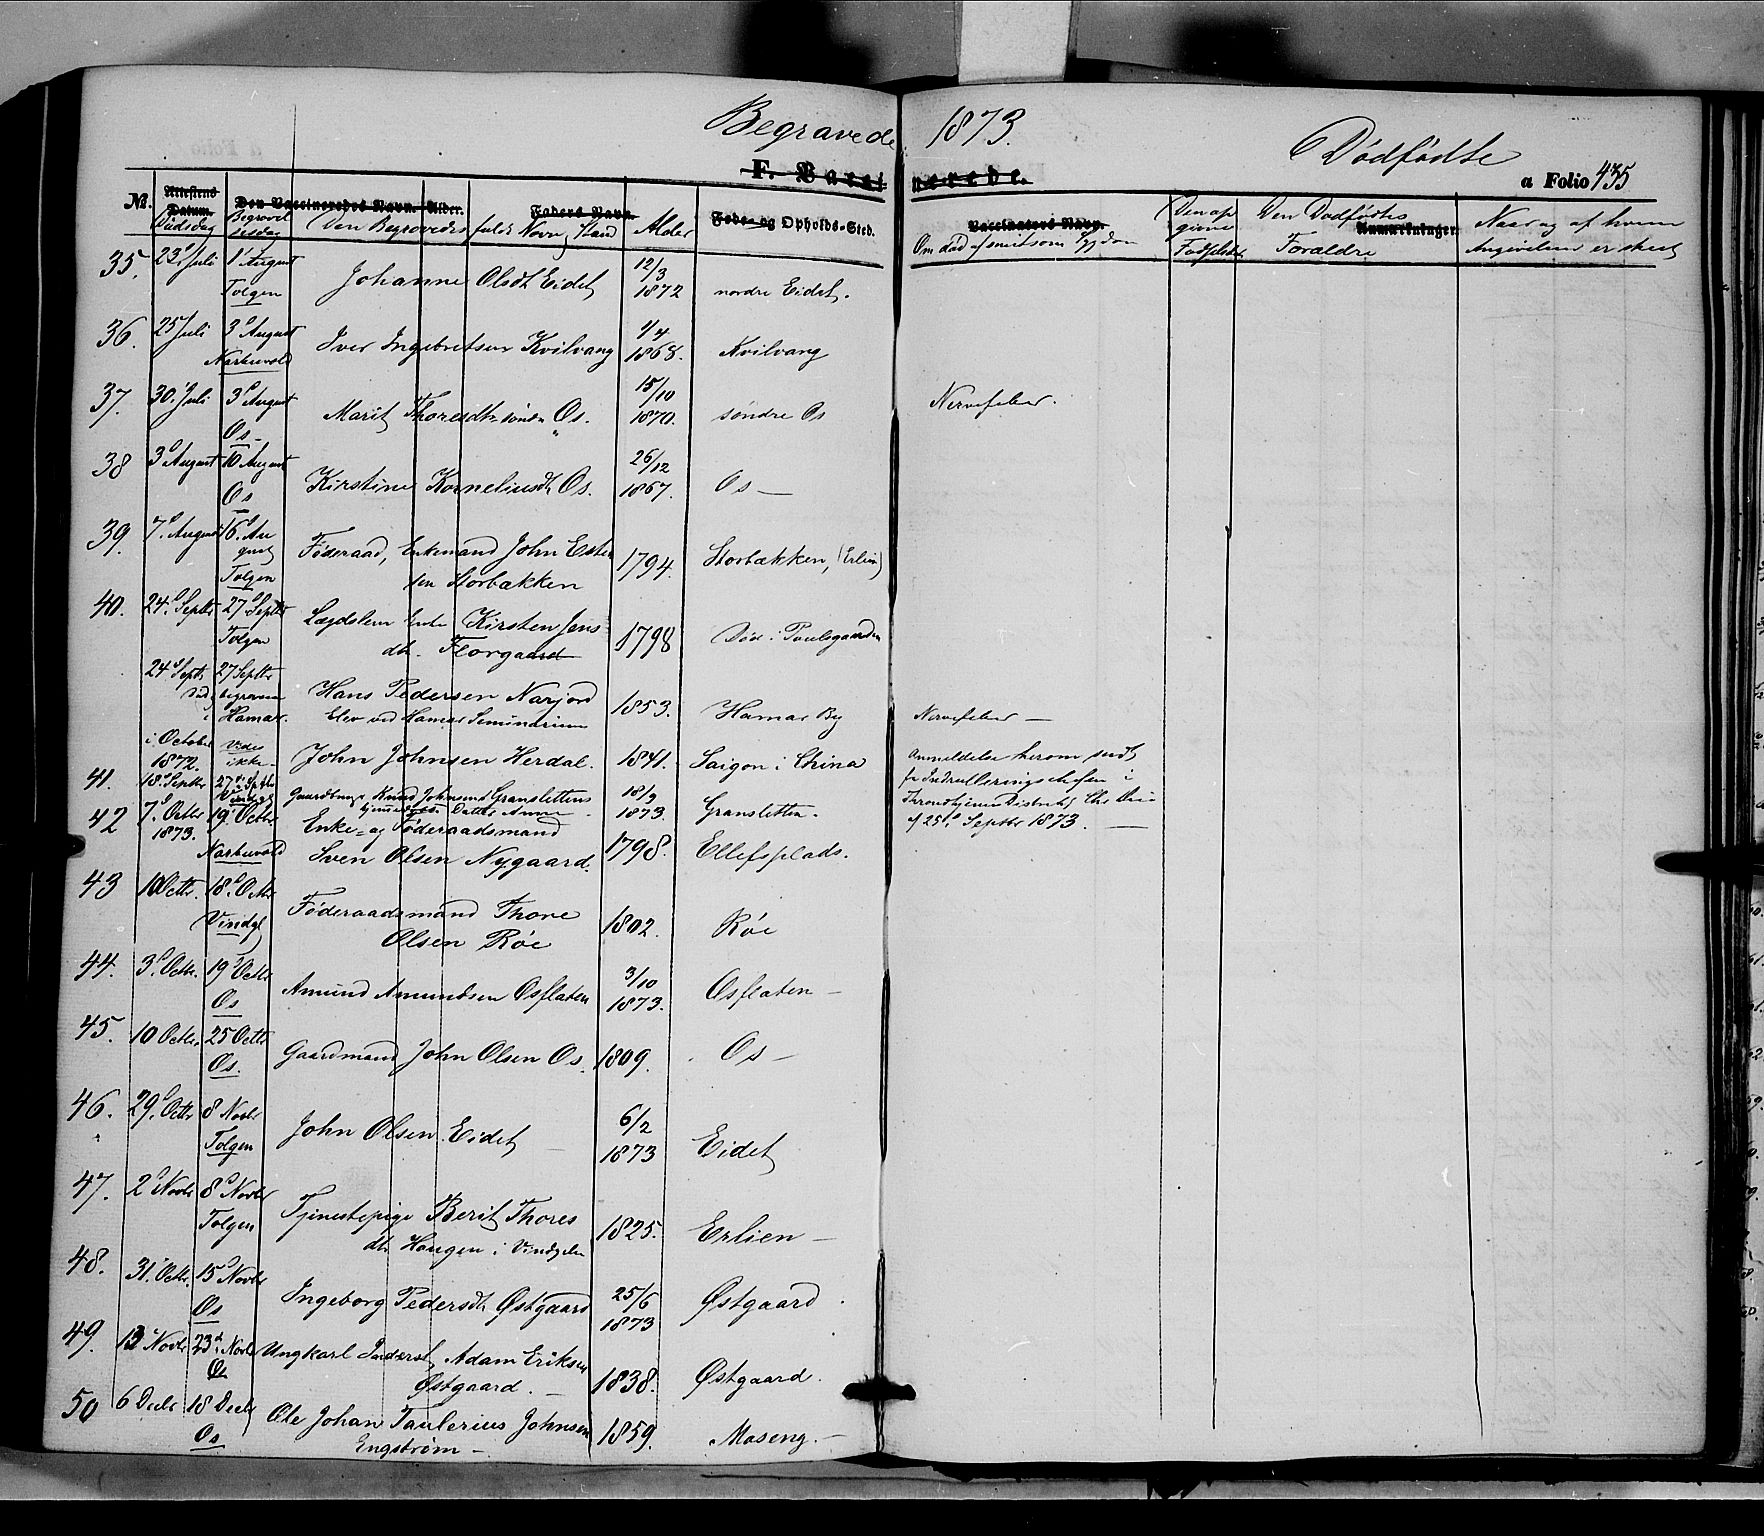 Begravede 1873.
Dødfødte
F. Vaccinerede.
a Folio 435
No. Attestens Datum. Den Vaccineredes Navn. Alder. Faders Navn. Føde- og Opholds-Sted. Vaccinators Navn. Anmærkninger
Dødsdag Begravelsesdag Den Begravedes fulde Navn, Stand Alder Om død af smitsom Sygdom Den opgivne Fødselsdag Den Dødfødtes Forældre Naar og af hvem Angivelsen er skeet
35. 23 Juli 1 August Tolgen Johanne Olsdt Eidet 12/3 1872 nordre Eidet.
36. 25 Juli 3 August Narbuvold Iver Ingebretsen Kvilvang 4/4 1868. Kvilvang
37. 30. Juli 3 August Os Marit Thoresdtr søndre Os. 15/10 1870. søndre Os Nervefeber.
38 3 August 10 August Os Kirstine Korneliusdt Os. 26/12 1867. Os
39. 7. August 16. August Tolgen Føderaad, Enkemand John Estensen Storbækken 1794. Storbækken, (Erlien)
40. 24. Septbr 27. Septbr Tolgen Lægdslem Enke Kirsten Jensdtr. Florgaard 1798 Død i Poulsgaarden
24 Septbr Død i 27 Septbr begraven Hamar. Hans Pedersen Narjord
Elev ved Hamar Seminarium 1853. Hamar By Nervefeber
i October 1872. vides ikke John Johnsen Herdal. 1841. Saigon i China Anmeldelse herom sendt
fr Indrulleringschefen i
Throndhjems District
af 25. Septbr 1873.
41. 18 Septbr 27 Septbr Gaardbruger Knud Johnsens Gransletten
hjemmedøbt Datter Anne 18/9 1873. Gransletten.
42 7. Octbr 1873. 19. Octbr Narbuvold Enke- og Føderaadsmand
Sven Olsen Nygaard. 1798. Ellefsplads.
43 10 Octbr. 18. Octbr Vindgl Føderaadsmand Thore
Olsen Røe 1802. Røe
44. 3. Octbr. 19 Octbr Os Amund Amundsen Osflaten 3/10 1873. Osflaten
45. 10 Octbr. 25 Octbr Os. Gaardmand John Olsen Os. 1809. Os
46. 29. Octbr 8 Novbr Tolgen John Olsen Eidet 6/2 1873 Eidet
47. 2 Novbr 8 Novbr Tolgen Tjenestepige Berit Thores
dtr Haugen i Vindgelen 1825. Erlien
48. 31. Octbr. 15 Novbr Os Ingeborg Pedersdt Østgaard 25/6 1873 Østgaard
49. 13 Novbr 23 Novbr Os Ungkarl Inderst Adam Eriksen
Østgaard. 1838. Østgaard.
50 6 Decbr 18 Decbr Os Ole Johan Taulerius Johnsen
Engstrøm 1859. Moseng.